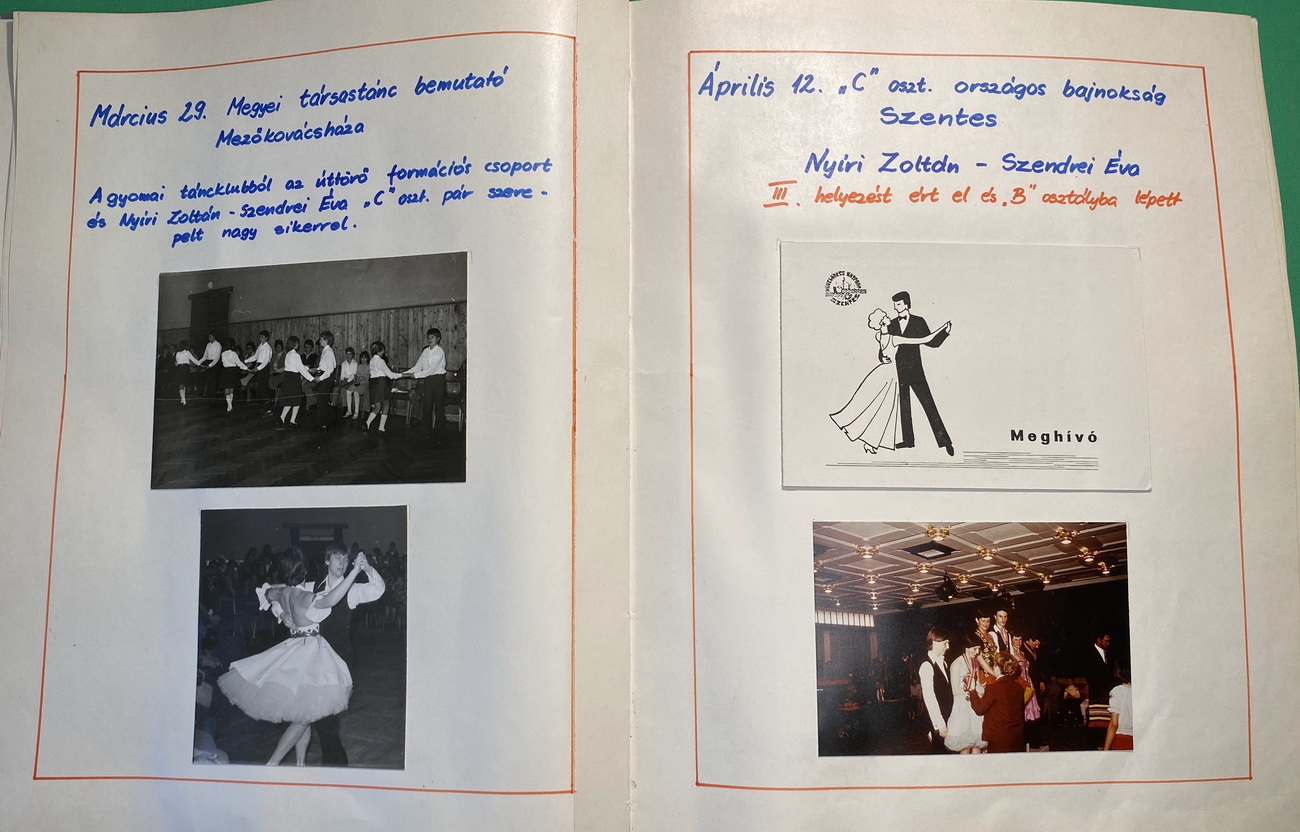 Március 29. Megyei társastánc bemutató
Mezőkovácsháza
A gyomai táncklubból az úttörő formációs csoport
és Nyíri Zoltán - Szendrei Éva „C" oszt. pár szere -
pelt nagy sikerrel.
Április 12. „C" oszt. országos bajnokság
Szentes
Nyíri Zoltán - Szendrei Éva
III. helyezést ért el és „B" osztályba lépett
SZENTES
Meghívó